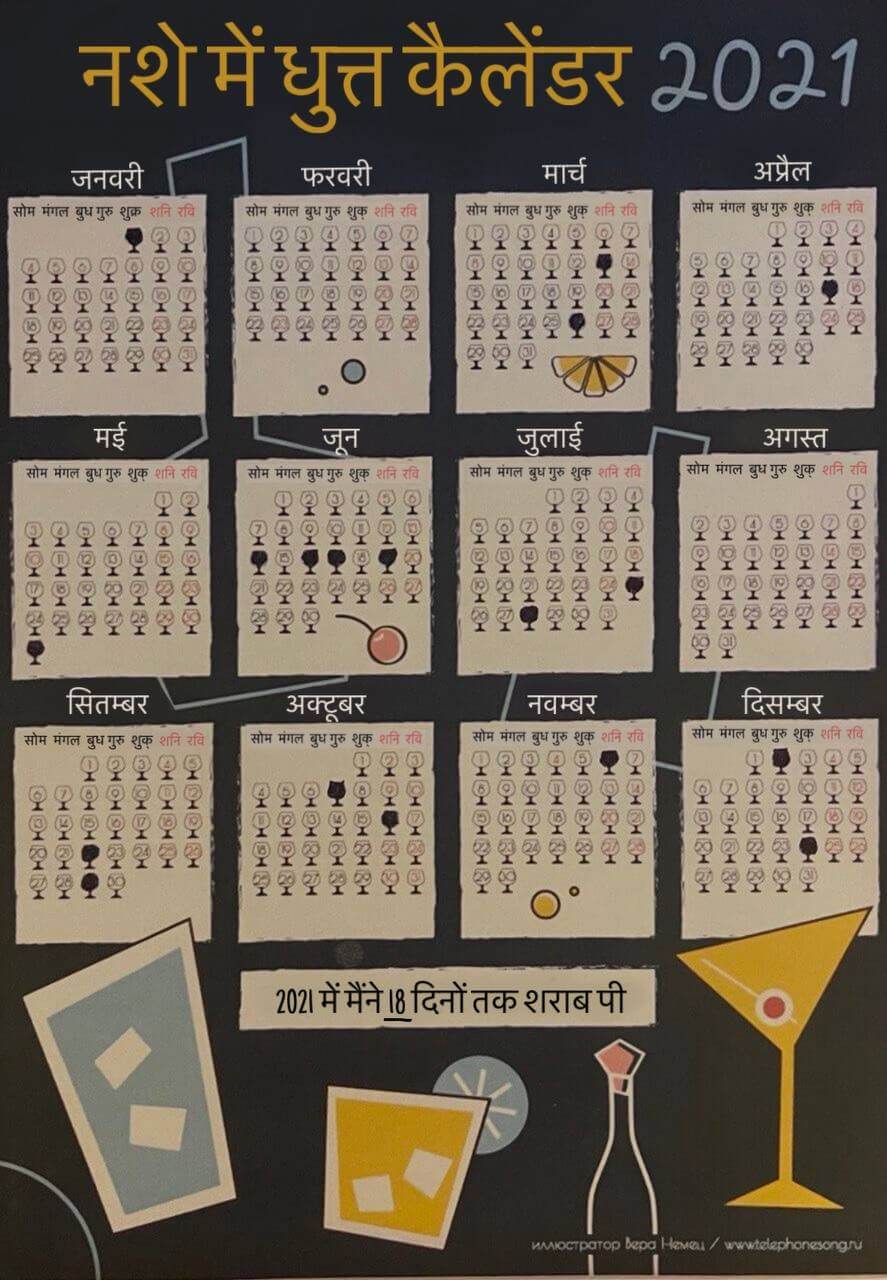 नशे में धुत्त कैलेंडर 2021
जनवरी
सोम मंगल बुध गुरु शुक्र शनि रवि
2 3
4 5 6 7 8 9 10
11 12 13 14 15 16 17
18 19 20 21 22 23 24
25 26 27 28 29 30 31
फरवरी
सोम मंगल बुध गुरु शुक् शनि रवि
1 2 3 4 5 6 7
8 9 10 11 12 13 14
15 16 17 18 19 20 21
22 23 24 25 26 27 28
मार्च
सोम मंगल बुध गुरु शुक् शनि रवि
1 2 3 4 5 6 7
8 9 10 11 12 14
15 16 17 18 19 20 21
22 23 24 25 27 28
29 30 31
अप्रैल
सोम मंगल बुध गुरु शुक् शनि रवि
1 2 3 4
5 6 7 8 9 10 11
12 13 14 15 16 18
19 20 21 22 23 24 25
26 27 28 29 30
मई
सोम मंगल बुध गुरु शुक् शनि रवि
1 2
3 4 5 6 7 8 9
10 11 12 13 14 15 16
17 18 19 20 21 22 23
24 25 26 27 28 29 30
जून
सोम मंगल बुध गुरु शुक् शनि रवि
1 2 3 4 5 6
7 8 9 10 11 12 13
15 18 20
21 22 23 24 25 26 27
28 29 30
जुलाई
सोम मंगल बुध गुरु शुक् शनि रवि
1 2 3 4
5 6 7 8 9 10 11
12 13 14 15 16 17 18
19 20 21 22 23 24
26 27 29 30 31
अगस्त
सोम मंगल बुध गुरु शुक् शनि रवि
1
2 3 4 5 6 7 8
9 10 11 12 13 14 15
16 17 18 19 20 21 22
23 24 25 26 27 28 29
30 31
सितम्बर
सोम मंगल बुध गुरु शुक् शनि रवि
1 2 3 4 5
6 7 8 9 10 11 12
13 14 15 16 17 18 19
20 21 23 24 25 26
27 28 30
अक्टूबर
सोम मंगल बुध गुरु शुक् शनि रवि
1 2 3
4 5 6 8 9 10
11 12 13 14 15 17
18 19 20 21 22 23 24
25 26 27 28 29 30 31
नवम्बर
सोम मंगल बुध गुरु शुक् शनि रवि
1 2 3 4 5 7
8 9 10 11 12 13 14
15 16 17 18 19 20 21
22 23 24 25 26 27 28
29 30
दिसम्बर
सोम मंगल बुध गुरु शुक् शनि रवि
1 3 4 5
6 7 8 9 10 11 12
13 14 15 16 17 18 19
20 21 22 23 25 26
27 28 29 30 31
2021 में मैंने 18 दिनों तक शराब पी
иллюстратор Вера Немец / www.telephonesong.ru